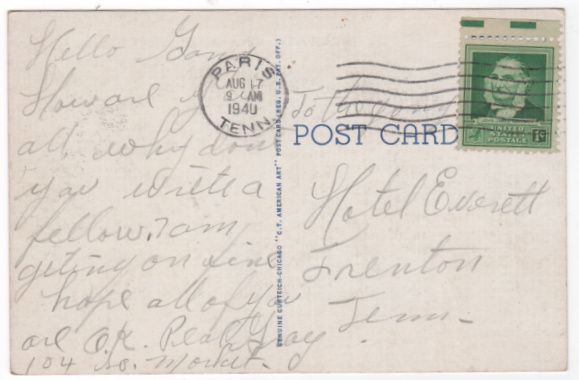 Hello Gang
Howard & 
all, why don't
you write a
fellow, I am
geting on fine
hope all of you
are O.K.
104 So. Market.
PARIS
AUG 17
9 AM
1940
TENN.
GENUINE CURTEICH-CHICAGO "C.T. AMERICAN ART" POST CARD (REG. U.S. PAT. OFF.)
To the
POST CARD
UNITED
STATES
POSTAGE
1¢
Hotel Everett
Trenton
Tenn-